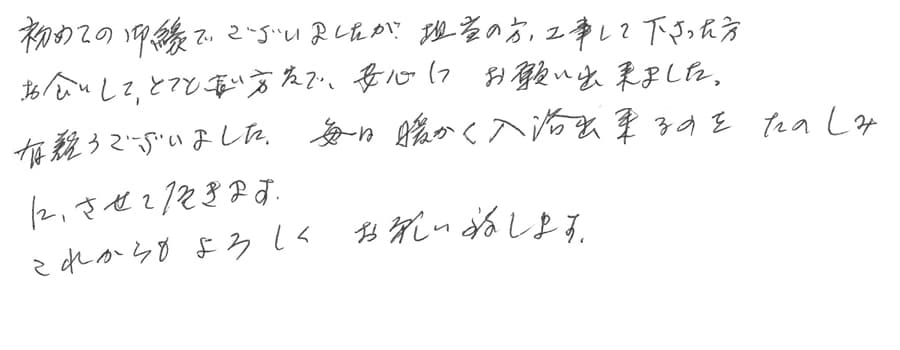 初めての御縁でございましたが、担当の方、工事して下さった方
お会いして、とても良い方々で、安心して お願い出来ました。
有難うございました。 毎日 暖かく入浴出来るのを たのしみ
に、させて頂きます。
これからも よろしく お願い致します。